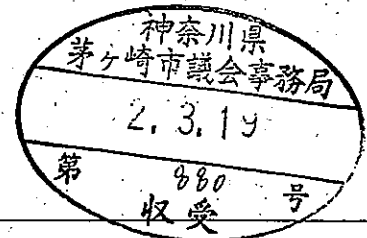 神奈川県
茅ヶ崎市議会事務局
2.3.19
第 880 号
収受